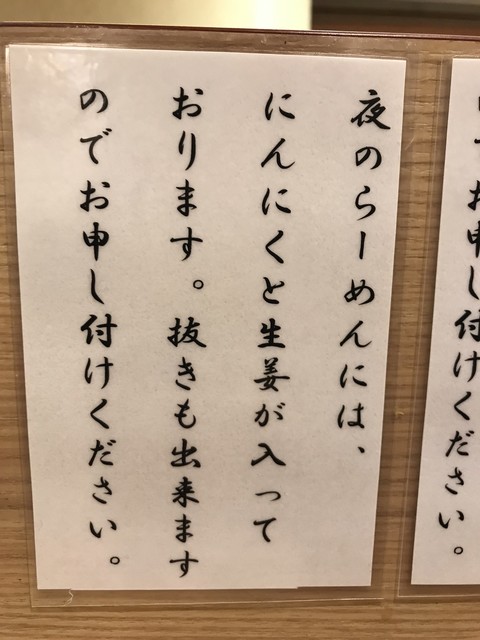 夜のらーめんには、
にんにくと生姜が入って
おります。抜きも出来ます
のでお申し付けください。
でお申し付けください。